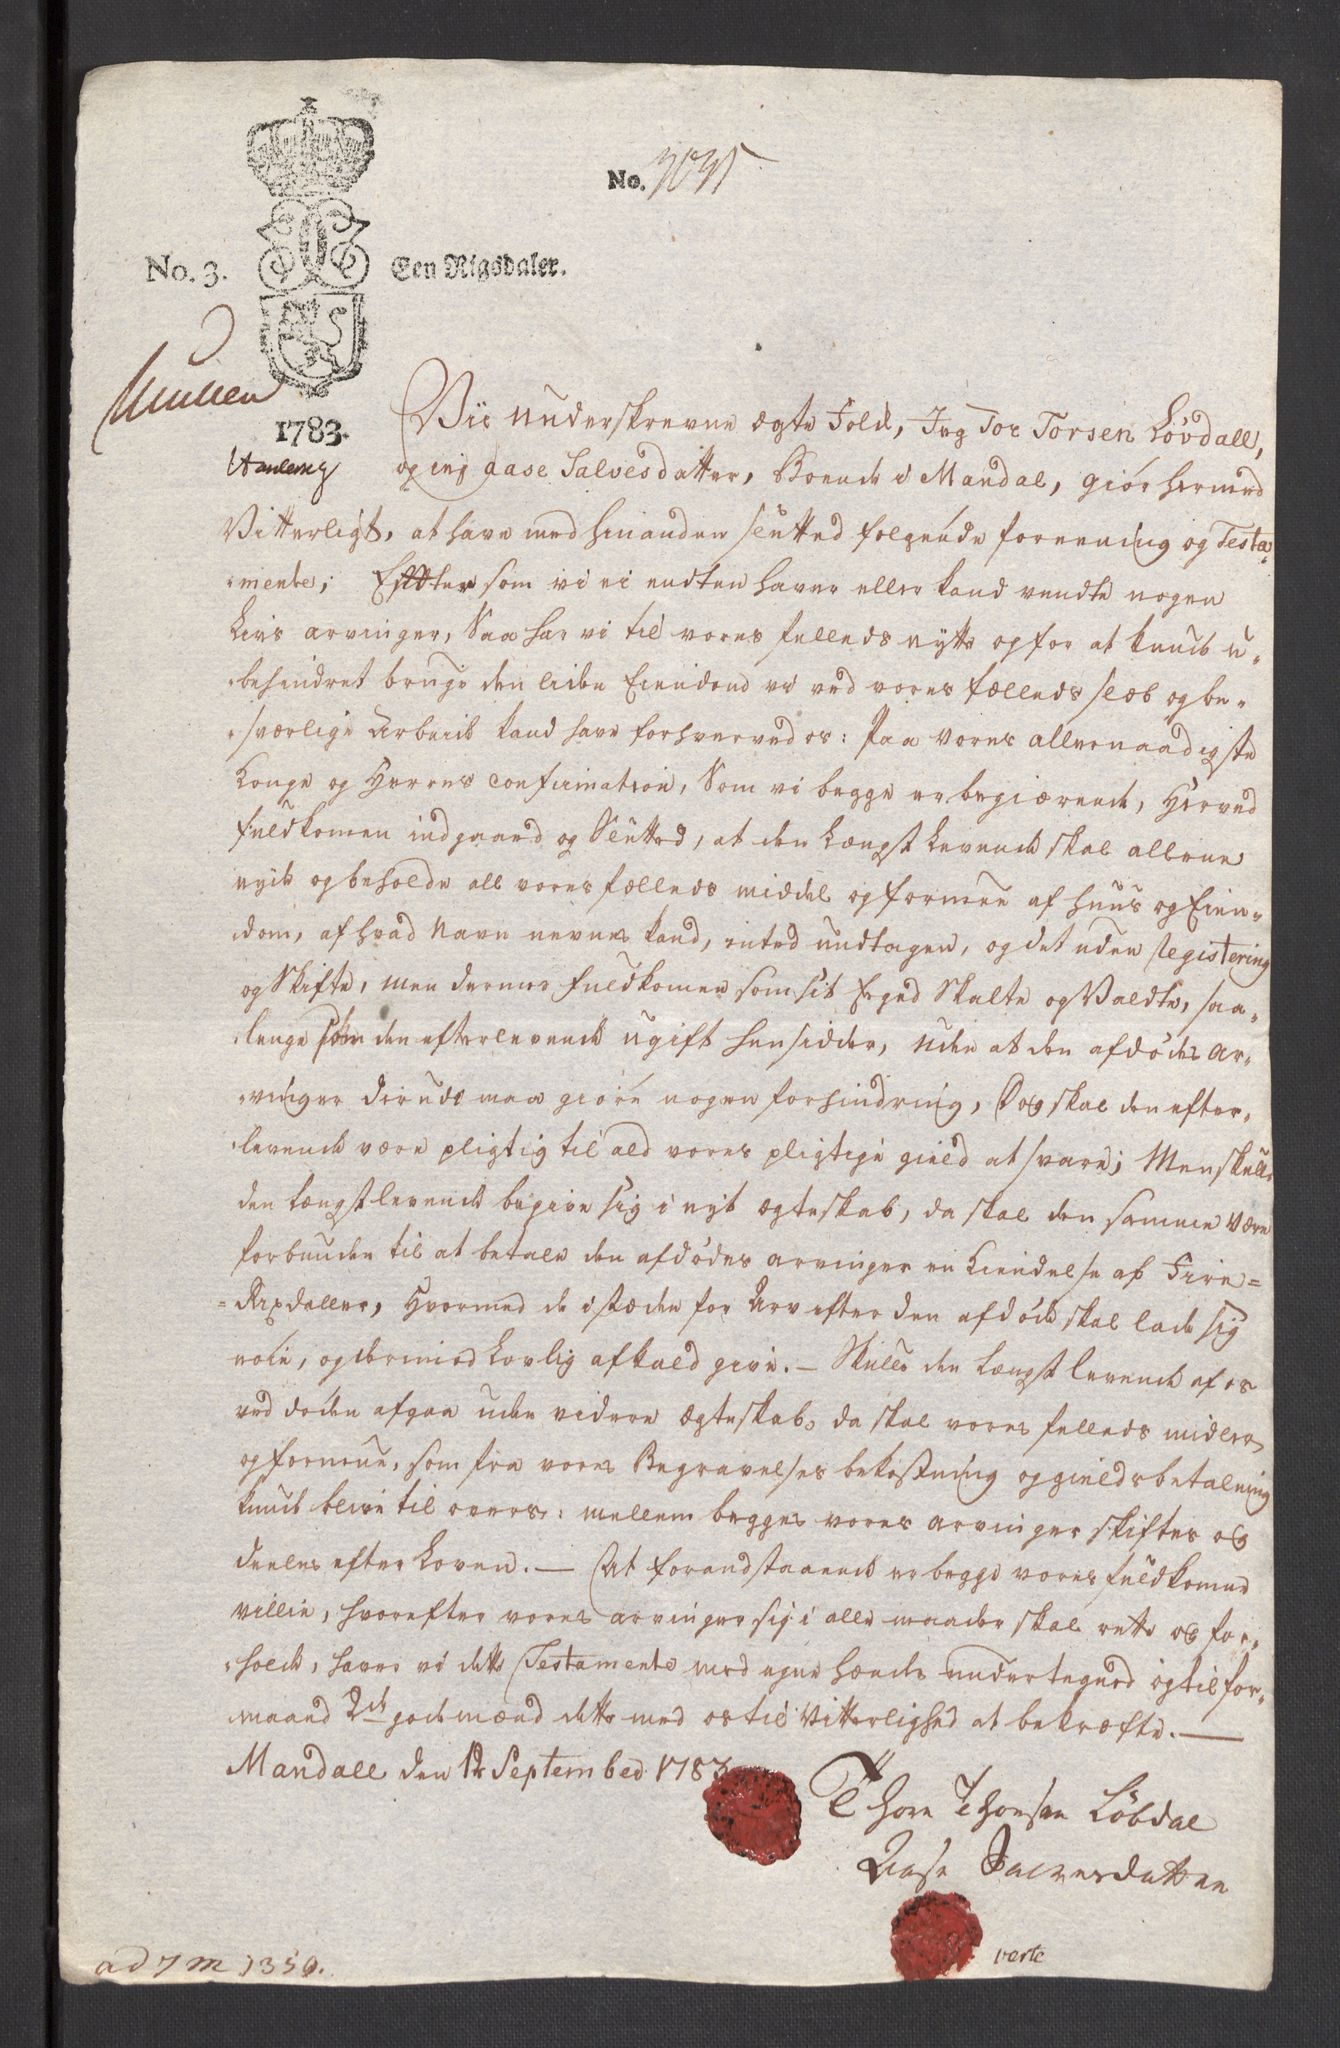 No. 3035
No. 3. Een Rigsdaler.
1783.
Vii underskrevne ægte Folk, Jeg Tor Torsen Lövdall,
og ieg aase Salvesdatter, Boende i Mandal, giör hermed
Vitterligt, at have med hinanden slutted følgende forrening og Testa„
„mente; Eftter som vi ei endten haver eller kand vendte nogen
Livs arvinger, Saa har vi til vores felleds nytte og for at kunde u„
„behindret bruge den lidte Eiendend vi ved vores fælleds slæb og be„
„sværlige Arbeide kand have forhverved os: Paa vores allernaadigste
Konge og Herres confirmation, Som vi begge er begiærende, Herved
fuldkomen indgaaed og Sluttet, at den Længst Levende skal allene
nyde og beholde all vores fælleds middel og formue af huus og Eien„
„dom, af hvad Navn nevnes kand, inted undtagen, og det uden Registering
og Skifte, men dermed fuldkomen som sit Eyed Skalte og Valdte, saa„
„lenge som den efterlevende ugift hensidder, uden at den afdödes ar„
„vinger derudi maa giöre nogen forhindring, Dog skal den efter„
„levende være pligtig til ald vores pligtige gield at svare; Men skulle
den længst levende begive sig i nyt ægteskab, da skal den samme være
forbunden til at betale den afdödes arvinger en Kiendelse af Fire=
=Rixdaller, Hvormed de istæden for Arv efter den afdöde skal lade sig
nöie, og dermed Lovlig afkald give. — Skulle den Længst levende af os
ved döden afgaa uden videre ægteskab, da skal vores felleds midler
og formue, som fra vores Begravelses bekostning og gields betalning
kunde blive til overs: mellem begges vores arvinger skiftes og
deeles efter Loven. — At forandstaaende er begge vores fuldkomne
villie, hvorefter vores arvinger sig i alle maader skal rette og for„
„holde, haver vi dette Testamente med egne hænder undertegned og til for„
maand 2de gode mænd dette med os til Vitterlighed at bekræfte. —
Mandall den 12 September 1783
Thore Thorsen Löbdal
Aase Salvesdatter
verte
ad 7 M 1350.